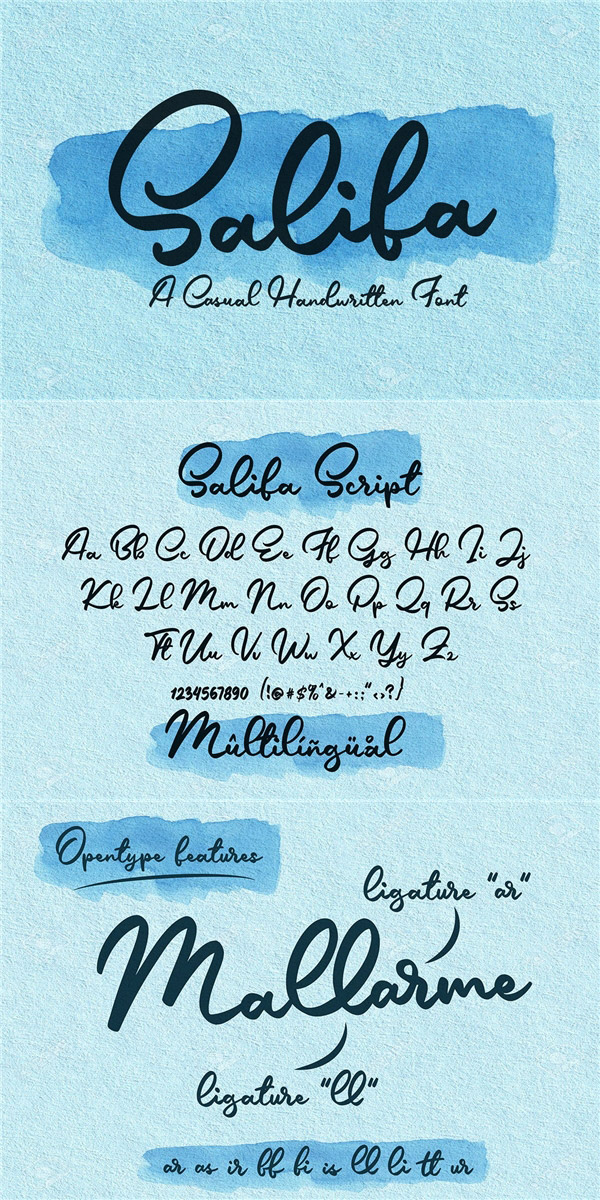 Salifa
A Casual Handwritten Font
Salifa Script
Aa Bb Cc Dd Ee Ff Gg Hh Ii Jj
Kk Ll Mm Nn Oo Pp Qq Rr Ss
Tt Uu Vv Ww Xx Yy Zz
1234567890 (!@#$%^&-+:;"<>?)
Mûltilíñgüål
Opentype features
ligature "ar"
Mallarme
ligature "ll"
ar as ir ff fi is ll li tt ur